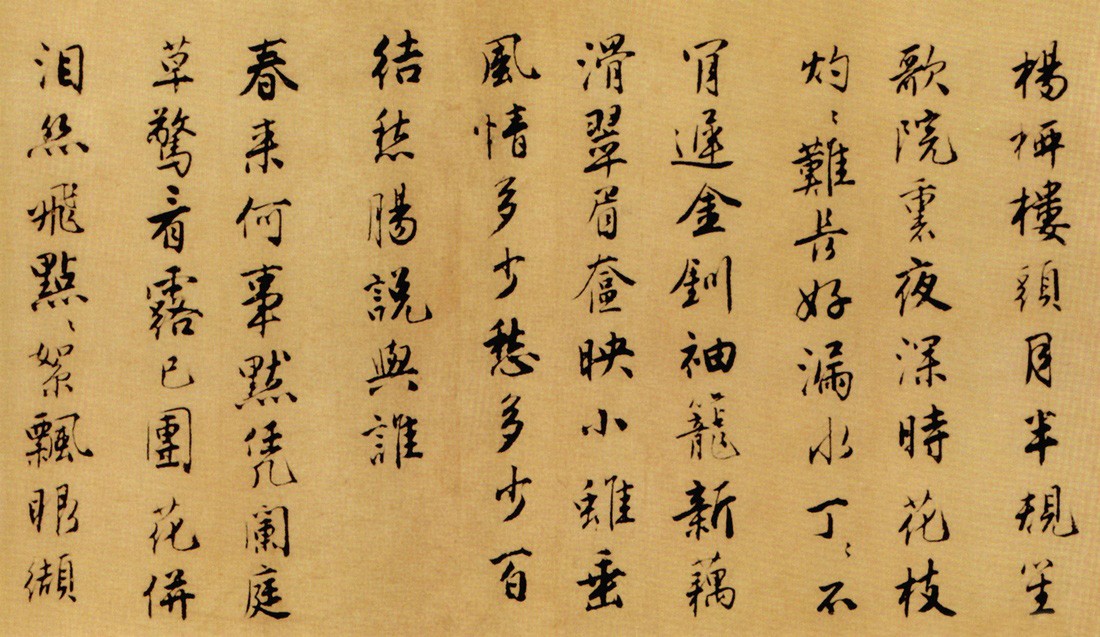 楊柳樓頭月半規笙
歌院裏夜深時花枝
灼灼難長好漏水丁丁不
肯遲金釧袖籠新藕
滑翠眉奩映小蛾垂
風情多少愁多少百
結愁腸說與誰
春來何事默凭闌庭
草驚看露已團花併
泪絲飛點點絮飄眼纈